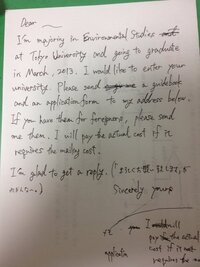 Dear
I'm majoring in Environmental Studies
at Tokyo University and going to graduate
in March, 2013. I would like to enter your
university. Please send a guidebook
and an application form to my address below.
If you have them for foreigners, please send
me them. I will pay the actual cost if it
requires the mailing cost.
I'm glad to get a reply.
Sincerely yours
you I will
pay the actual
cost if it
requires the
application